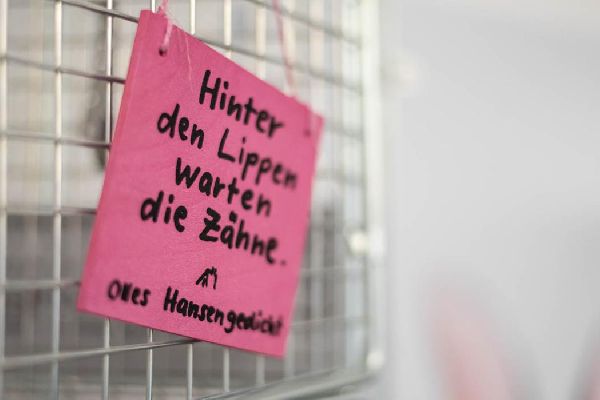 Hinter
den Lippen
warten
die Zähne.
Hansengedicht